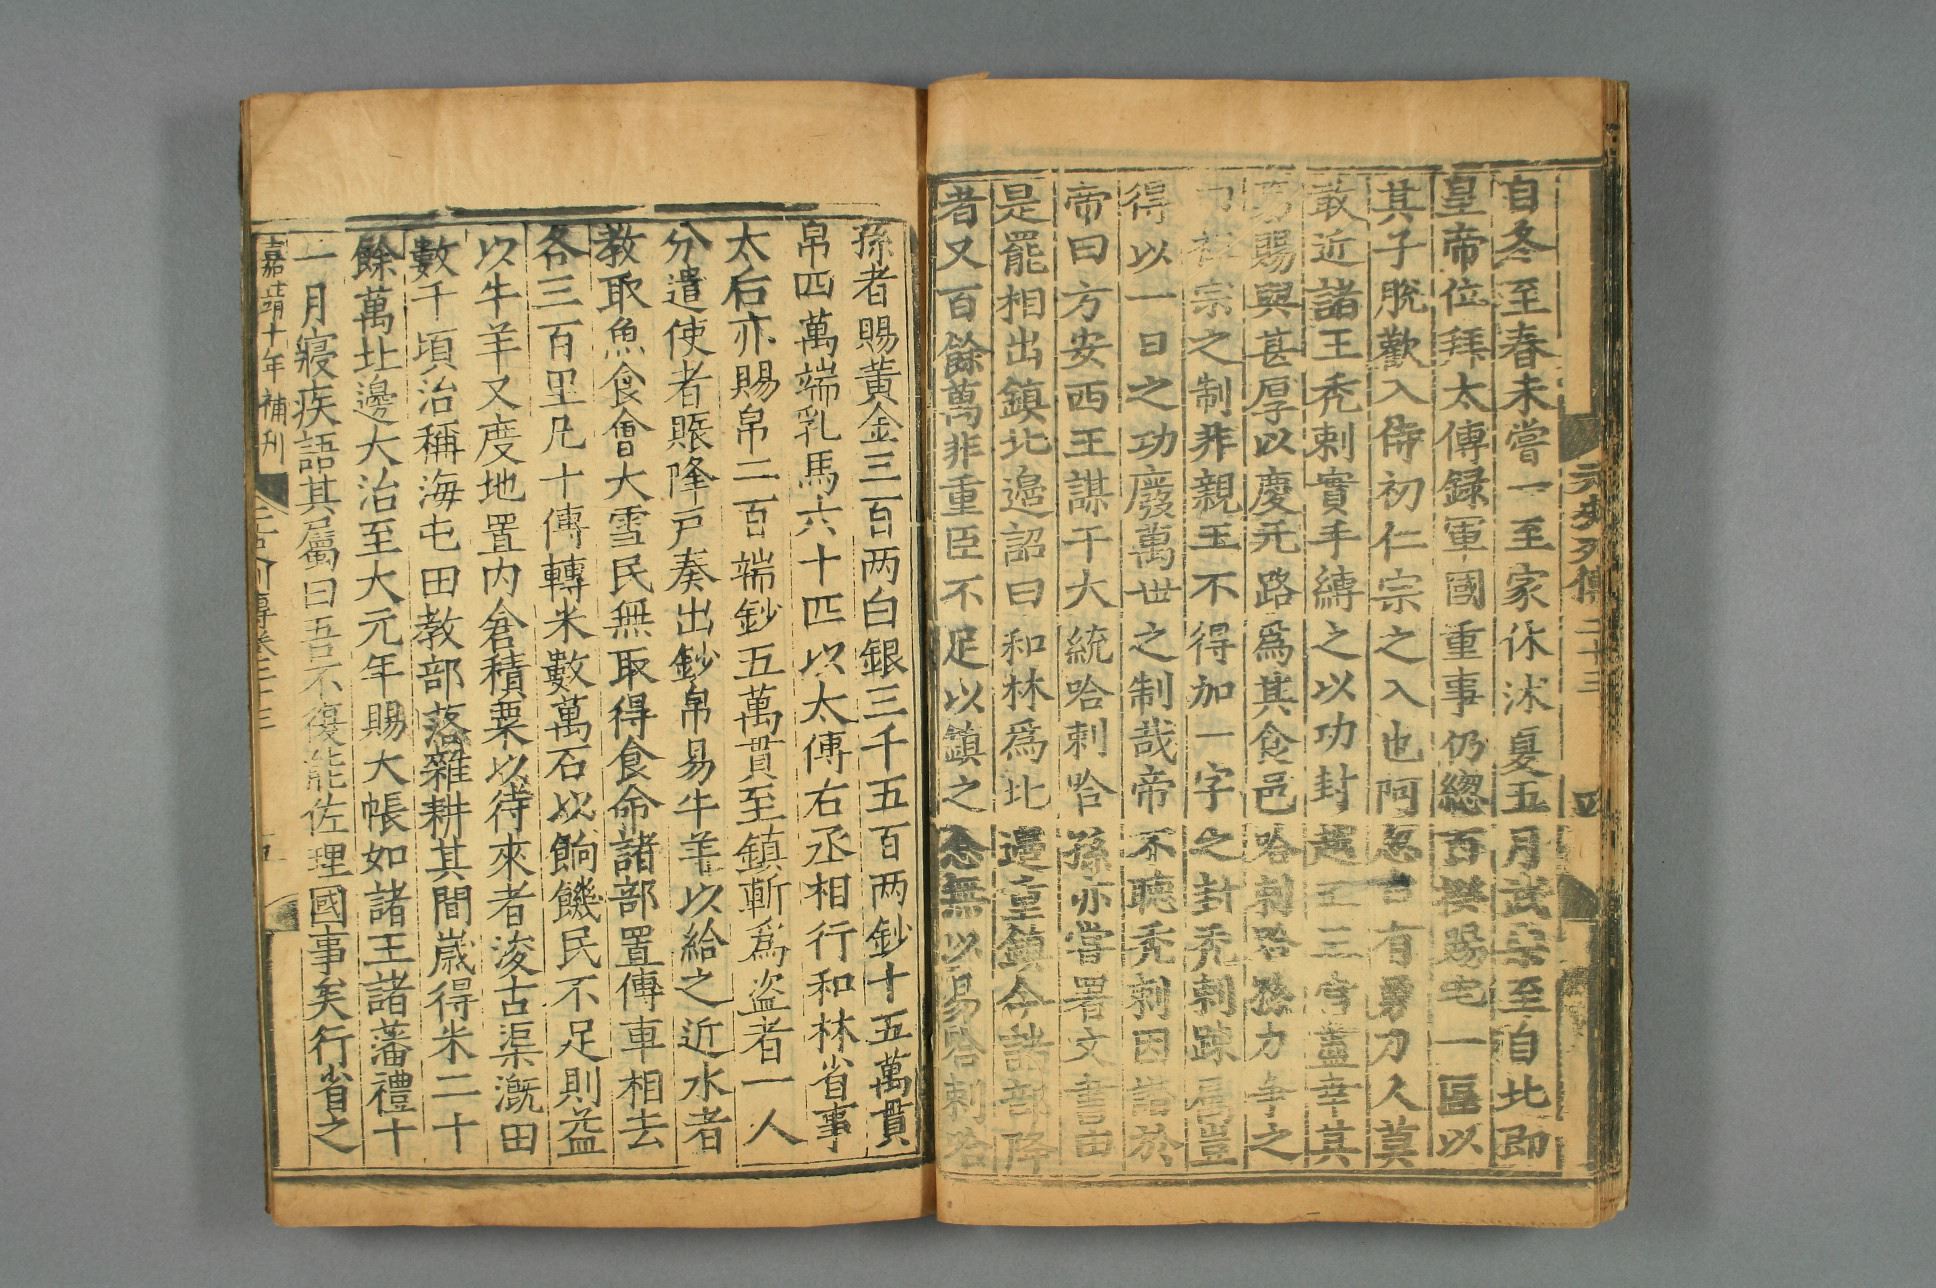 元史列傳二十三 四
自冬至春未嘗一至家休沐夏五月武宗至自北即
皇帝位拜太傅録軍國重事仍總百揆賜宅一區以
其子脫歡入侍初仁宗之入也阿忽台有勇力人莫
敢近諸王禿剌實手縛之以功封越王三宮盡幸其
賜與甚厚以慶元路爲其食邑哈剌哈孫力争之
祖宗之制非親王不得加一字之封禿剌疎屬豈
得以一日之功廢萬世之制哉帝不聽禿剌因譖於
帝曰方安西王謀干大統哈剌哈孫亦嘗署文書由
是罷相出鎮北邊詔曰和林爲北邊重鎮今諸部降
者又百餘萬非重臣不足以鎮之念無以易哈剌哈
孫者賜黃金三百两白銀三千五百两鈔十五萬貫
帛四萬端乳馬六十匹以太傅右丞相行和林省事
太后亦賜帛二百端鈔五萬貫至鎮斬爲盗者一人
分遣使者賑降戸奏出鈔帛易牛羊以給之近水者
教取魚食會大雪民無取得食命諸部置傳車相去
各三百里凡十傳轉米數萬石以餉饑民不足則益
以牛羊又度地置内倉積粟以待來者浚古渠溉田
數千頃治稱海屯田教部落雜耕其間歲得米二十
餘萬北邊大治至大元年賜大帳如諸王諸藩禮十
一月寢疾語其屬曰吾不復能佐理國事矣行省之
嘉靖十年補刊 傳卷二十三 五